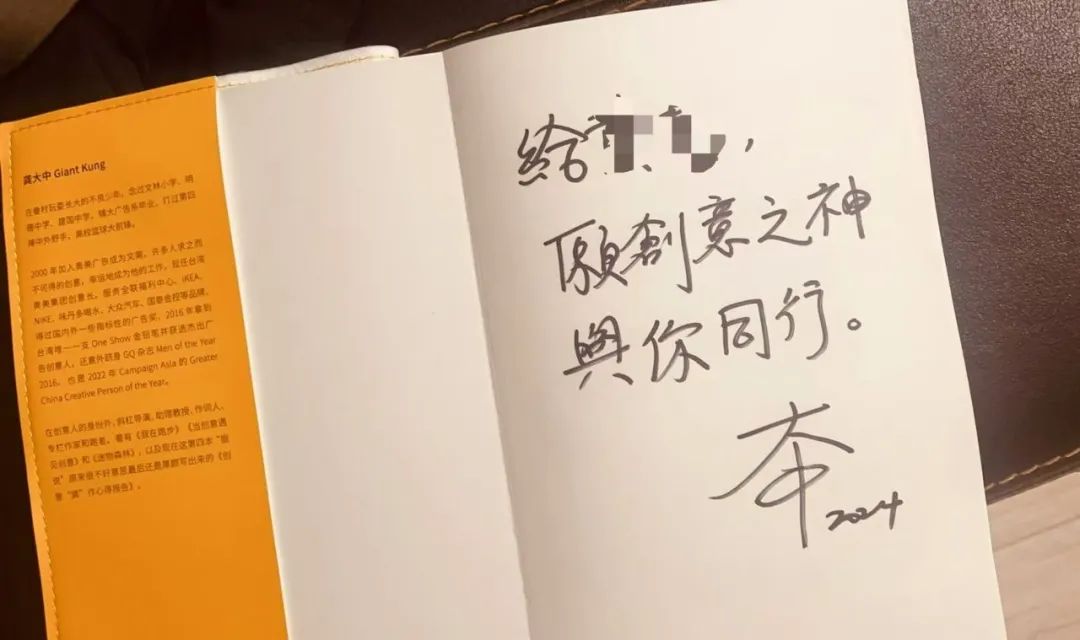 龚大中 Giant Kung
在眷村玩耍长大的不良少年，念过文林小学、明
德中学、建国中学、辅大广告系毕业，打过第四
棒中外野手、高校篮球大前锋。
2000 年加入奥美广告成为文案，许多人求之而
不可得的创意，幸运地成为他的工作，现任台湾
奥美集团创意长。服务全联福利中心、IKEA、
NIKE、味丹多喝水、大众汽车、国泰金控等品牌，
得过国内外一些指标性的广告奖，2016 年拿到
台湾唯一一支 One Show 金铅笔并获选杰出广
告创意人，还意外跻身 GQ 杂志 Men of the Year
2016。也是 2022 年 Campaign Asia 的 Greater
China Creative Person of the Year。
在创意人的身份外，斜杠导演、助理教授、作词人、
专栏作家和跑者。著有《我在跑步》《当创意遇
见创意》和《迷物森林》，以及现在这第四本“据
说”原来很不好意思最后还是厚颜写出来的《创
意“龚”作心得报告》。
給
，
願創意之神
與你同行。
2024